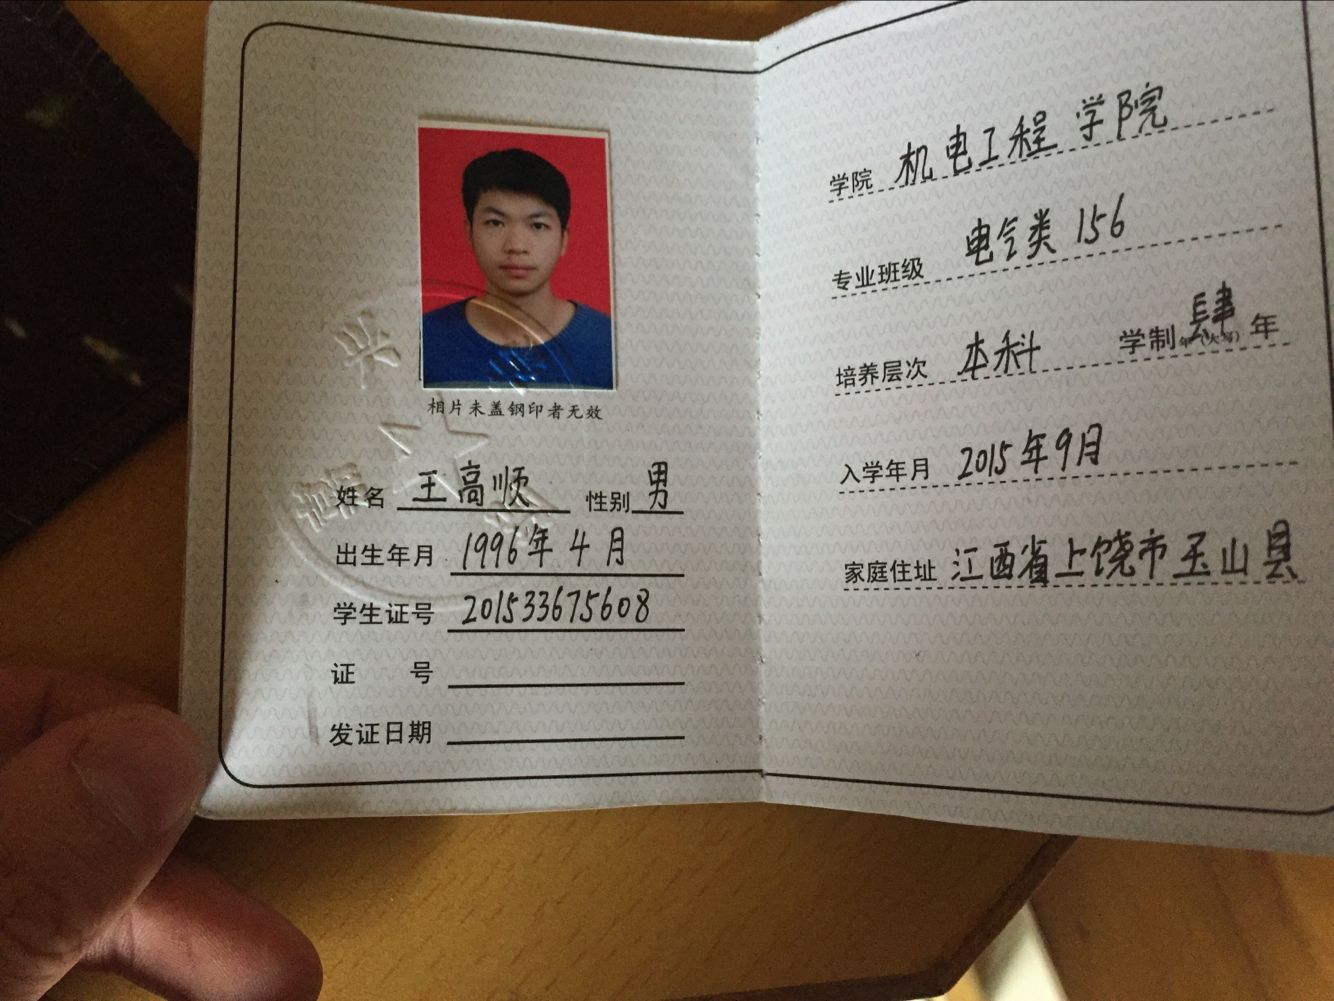 相片未盖钢印者无效
姓名 王高顺 性别 男
出生年月 1996年4月
学生证号 201533675608
证 号
发证日期
学院 机电工程学院
专业班级 电气类156
培养层次 本科 学制 肆 年(大写) 年
入学年月 2015年9月
家庭住址 江西省上饶市玉山县